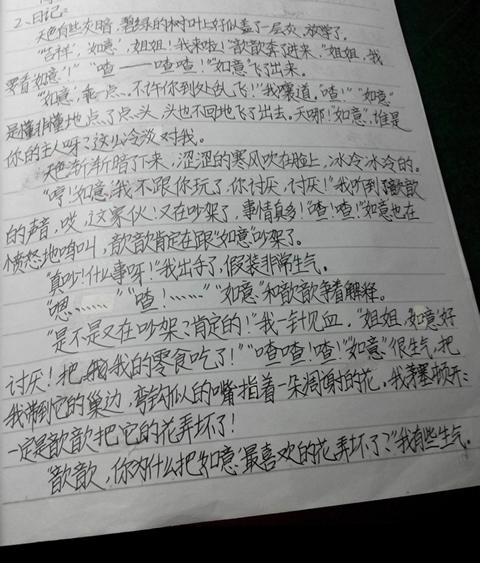 2、日记:
天色有些灰暗,碧绿的树叶上好似盖了一层灰,放学了。
"吉祥,如意,姐姐!我来啦!"歆歆奔了进来,"姐姐,我
要看如意"!""喳——喳喳!""如意"飞了出来。
"如意,乖一点,不许你到处乱飞!"我嚷道,"喳!""如意"
是懂非懂地点了点头,头也不回地飞了出去。天哪!"如意",谁是
你的主人呀?这么冷淡对我。
天色渐渐暗了下来,涩涩的寒风吹在脸上,冰冷冰冷的。
"哼!如意,我不跟你玩了,你讨厌,讨厌!"我听到了歆歆
的声音,哎,这家伙!又在吵架了,事情真多!"喳!喳!"如意也在
愤怒地鸣叫,歆歆肯定在跟"如意"吵架了。
"真吵!什么事呀!"我出手了,假装非常生气。
"嗯……""喳!……""如意"和歆歆争着解释。
"是不是又在吵架?肯定的!"我一针见血,"姐姐,如意"好
讨厌!把我的零食吃了!""喳喳!喳!"如意"很生气,把
我带到它的巢边,弯钩似的嘴指着一朵凋谢的花,我茅塞顿开:
一定是歆歆把它的花弄坏了!
"歆歆,你为什么把"如意"最喜欢的花弄坏了?"我有些生气。